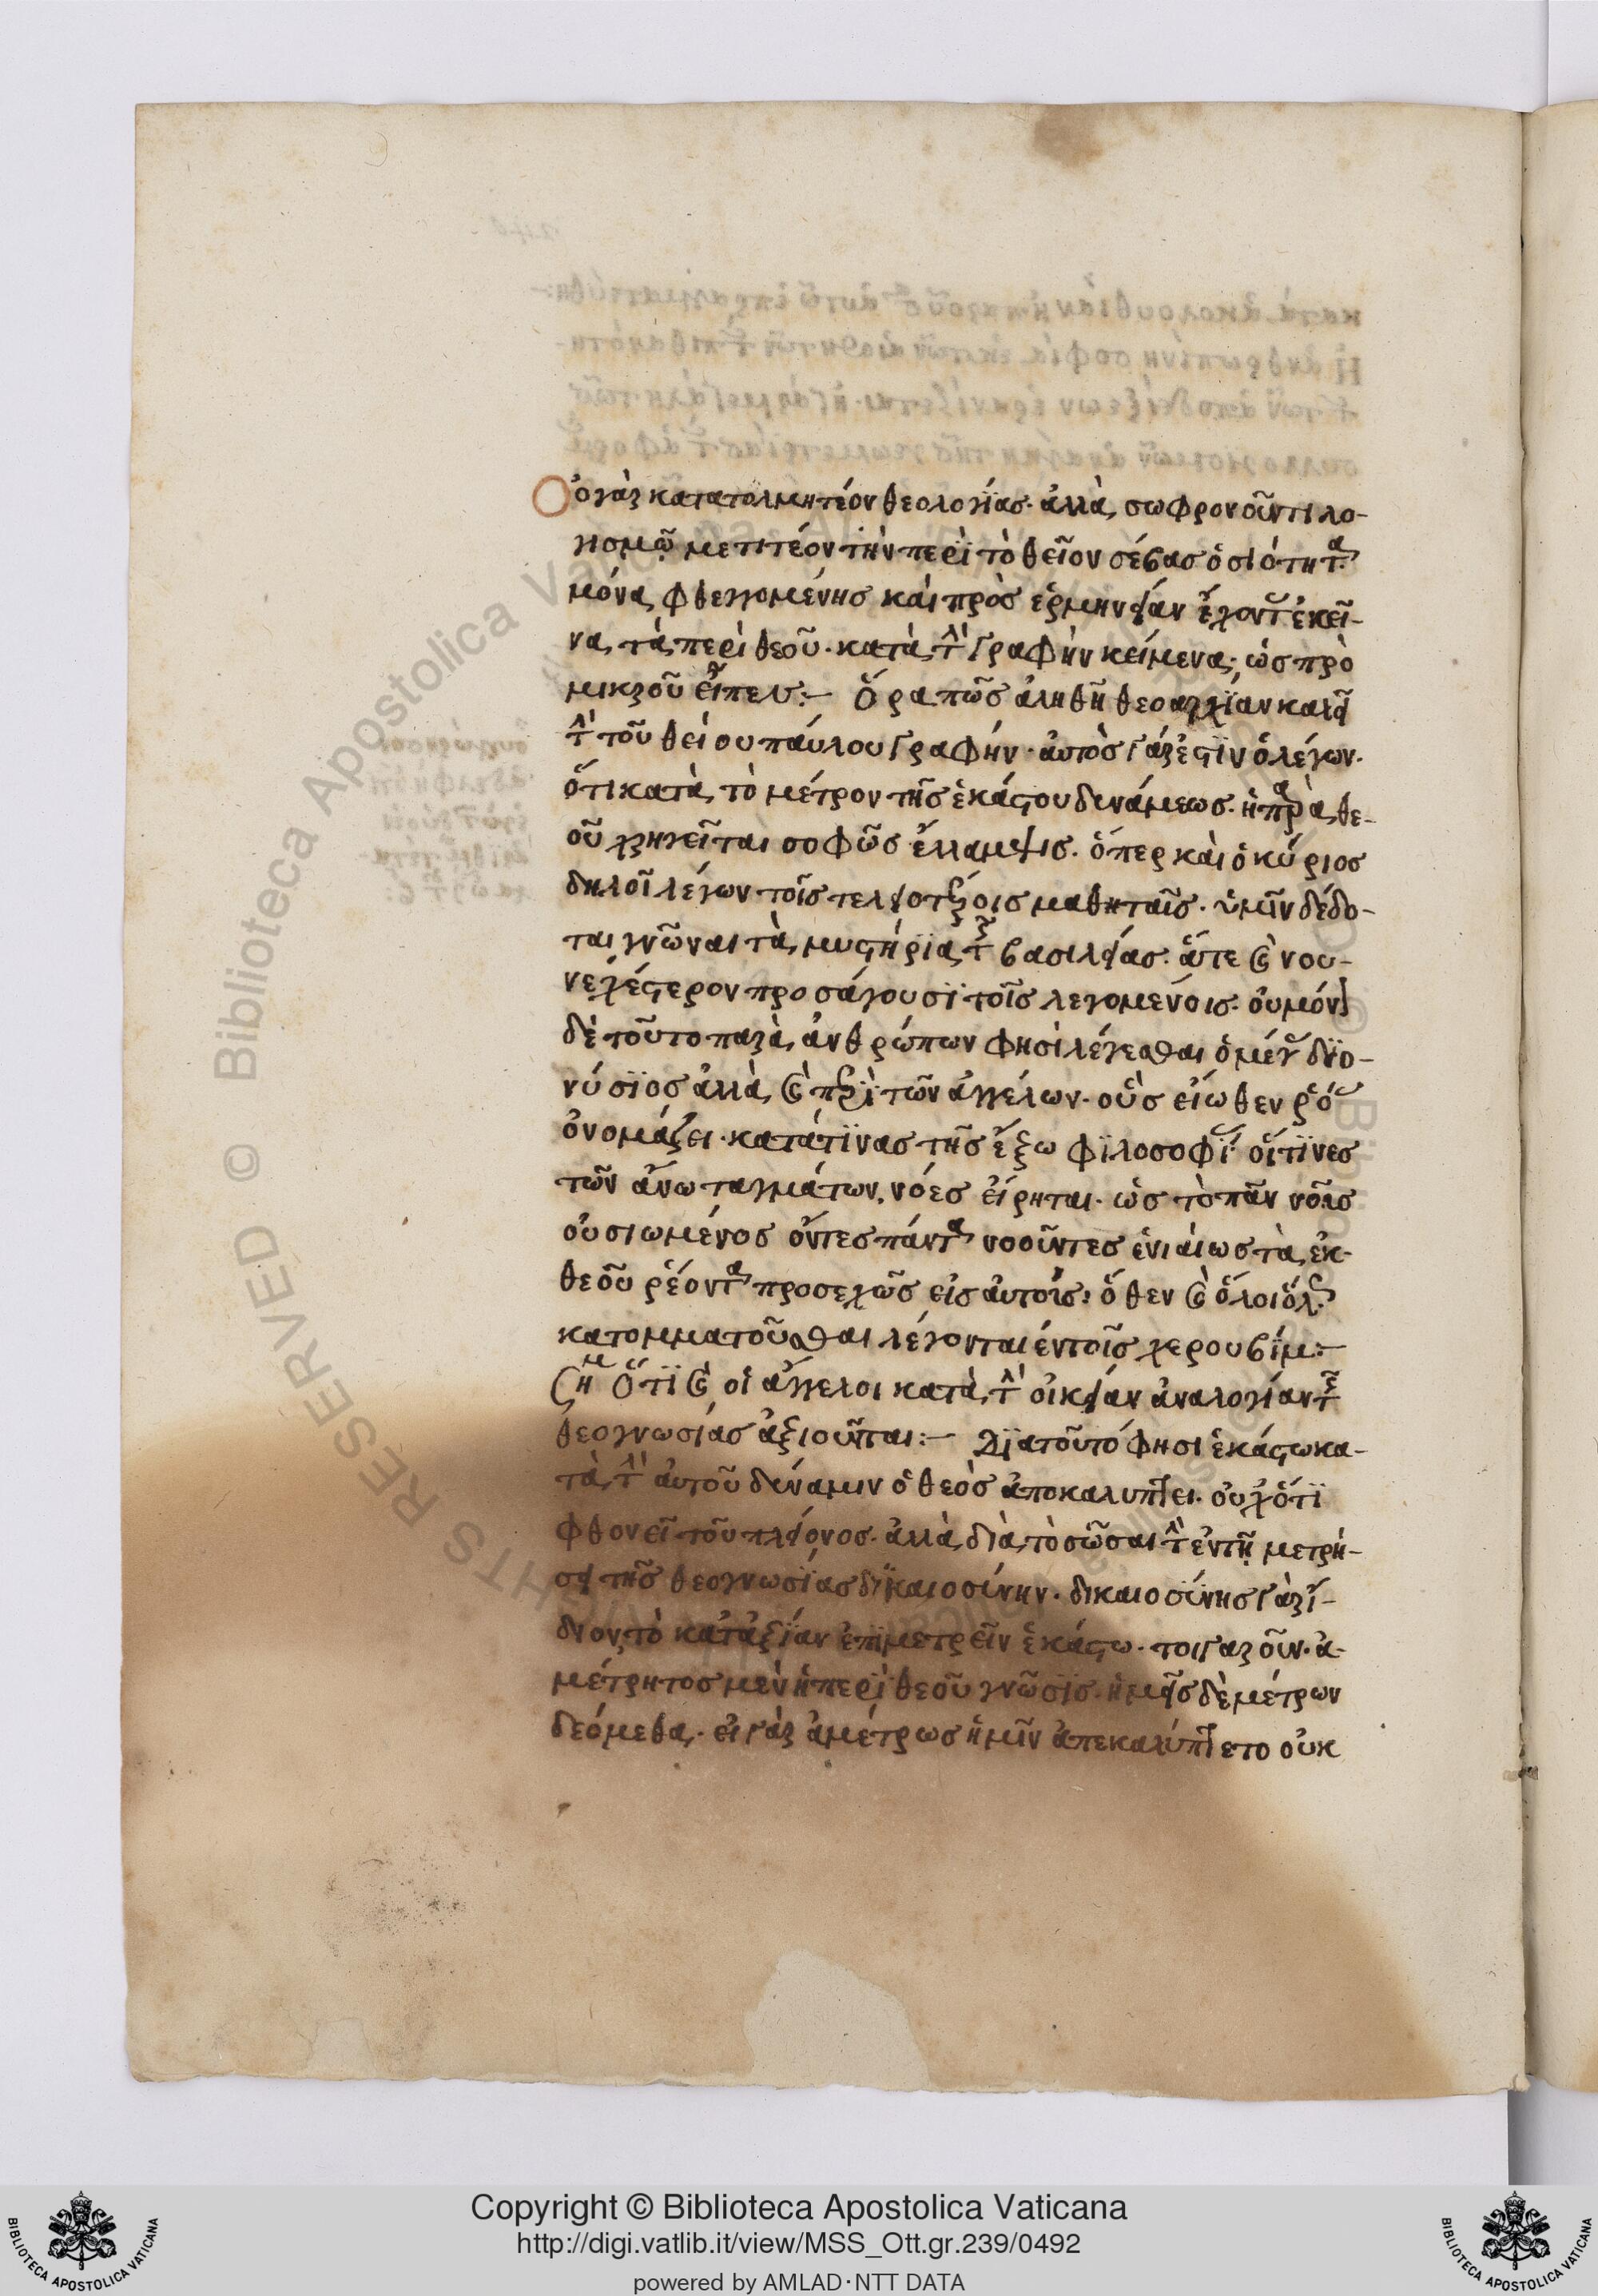 Ὀ γὰρ κατατολμητέον θεολογίας· ἀλλὰ, σωφρονοῦντι λο-
γισμῷ μετιτέον τὴν περὶ τὸ θεῖον σέβας ὁσιότητα
μόνα φθεγγομένης καὶ πρὸς ἑρμηνείαν ἔχοντας ἐκεῖ-
να, τὰ περὶ θεοῦ· κατὰ τὴν γραφὴν κείμενα· ὡς πρὸ
μικροῦ εἶπεν:— Ὅρα πῶς ἀληθῆ θεαρχίαν καλεῖ
τὴν τοῦ θείου παύλου γραφήν· αὐτὸς γάρ ἐστιν ὁ λέγων·
ὅτι κατὰ, τὸ μέτρον τῆς ἑκάστου δυνάμεως· ἡ παρὰ θε-
οῦ χορηγεῖται σοφῶς ἔλλαμψις· ὅπερ καὶ ὁ κύριος
δηλοῖ λέγων τοῖς τελειοτέροις μαθηταῖς· ὑμῖν δέδο-
ται γνῶναι τὰ, μυστήρια τῆς βασιλείας· ἅτε καὶ νου-
νεχέστερον προσάγουσϊ τοῖς λεγομένοις· οὐ μόνον
δὲ τοῦτο παρὰ, ἀνθρώπων φησὶ λέγεσθαι ὁ μέγας δϊο-
νύσϊος ἀλλὰ, καὶ περὶ τῶν ἀγγέλων· οὓς εἴωθεν νόας
ὀνομάζει· κατά τϊνας τῆς ἔξω φϊλοσοφίας οἵτϊνες
τῶν ἄνω ταγμάτων, νόες εἴρηται· ὡς τὸ πᾶν νοῦς
οὐσιωμένος ὄντες πάντα νοοῦντες ἑνιαίως τὰ, ἐκ
θεοῦ ῥέοντα προσεχῶς εἰς αὐτούς: ὅθεν καὶ ὅλοι δι' ὅλου
κατομματοῦσθαι λέγονται ἐν τοῖς χερουβίμ:—
Σημ Ὅτϊ καὶ οἱ ἄγγελοι κατὰ, τὴν οἰκείαν ἀναλογίαν τῆς
θεογνωσίας ἀξιοῦνται:— Διὰ τοῦτό φησι ἑκάστω κα-
τὰ, τὴν αὐτοῦ δύναμιν ὁ θεὸς ἀποκαλύπτει· οὐχ ὅτϊ
φθονεῖ τοῦ πλείονος· ἀλλὰ, διὰ, τὸ σῶσαι τὴν ἐν τῇ μετρή-
σει τῆς θεογνωσίας δϊκαιοσύνην· δικαιοσύνης γὰρ ἴ-
διον, τὸ κατ' ἀξίαν ἐπϊμετρεῖν ἑκάστω· τοιγαροῦν· ἀ-
μέτρητος μὲν ἡ περὶ θεοῦ γνῶσϊς· ἡμεῖς δὲ μέτρων
δεόμεθα· εἰ γὰρ ἀμέτρως ἡμῖν ἀπεκαλύπτετο οὐκ
Copyright © Biblioteca Apostolica Vaticana
http://digi.vatlib.it/view/MSS_Ott.gr.239/0492
powered by AMLAD·NTT DATA
BIBLIOTECA APOSTOLICA VATICANA
BIBLIOTECA APOSTOLICA VATICANA